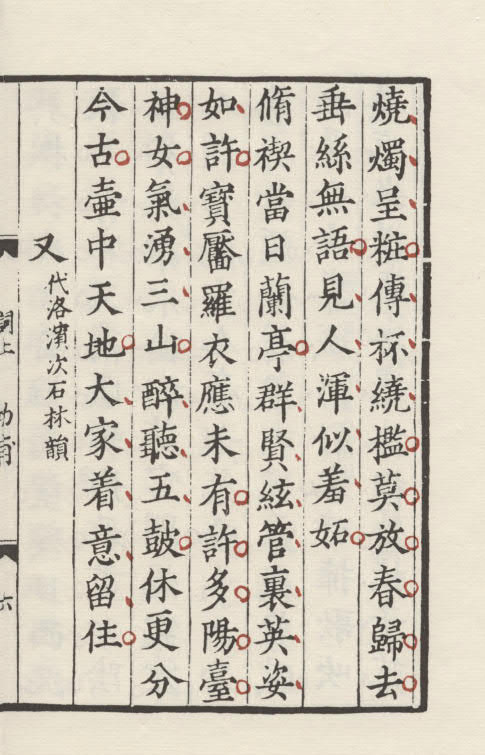 燒燭呈粧傳桮繞檻莫放春歸去
垂絲無語見人渾似羞妬
脩禊當日蘭亭群賢絃管裏英姿
如許寶靨羅衣應未有許多陽臺
神女氣湧三山醉聽五鼓休更分
今古壺中天地大家着意留住
又代洛濱次石林韻
六